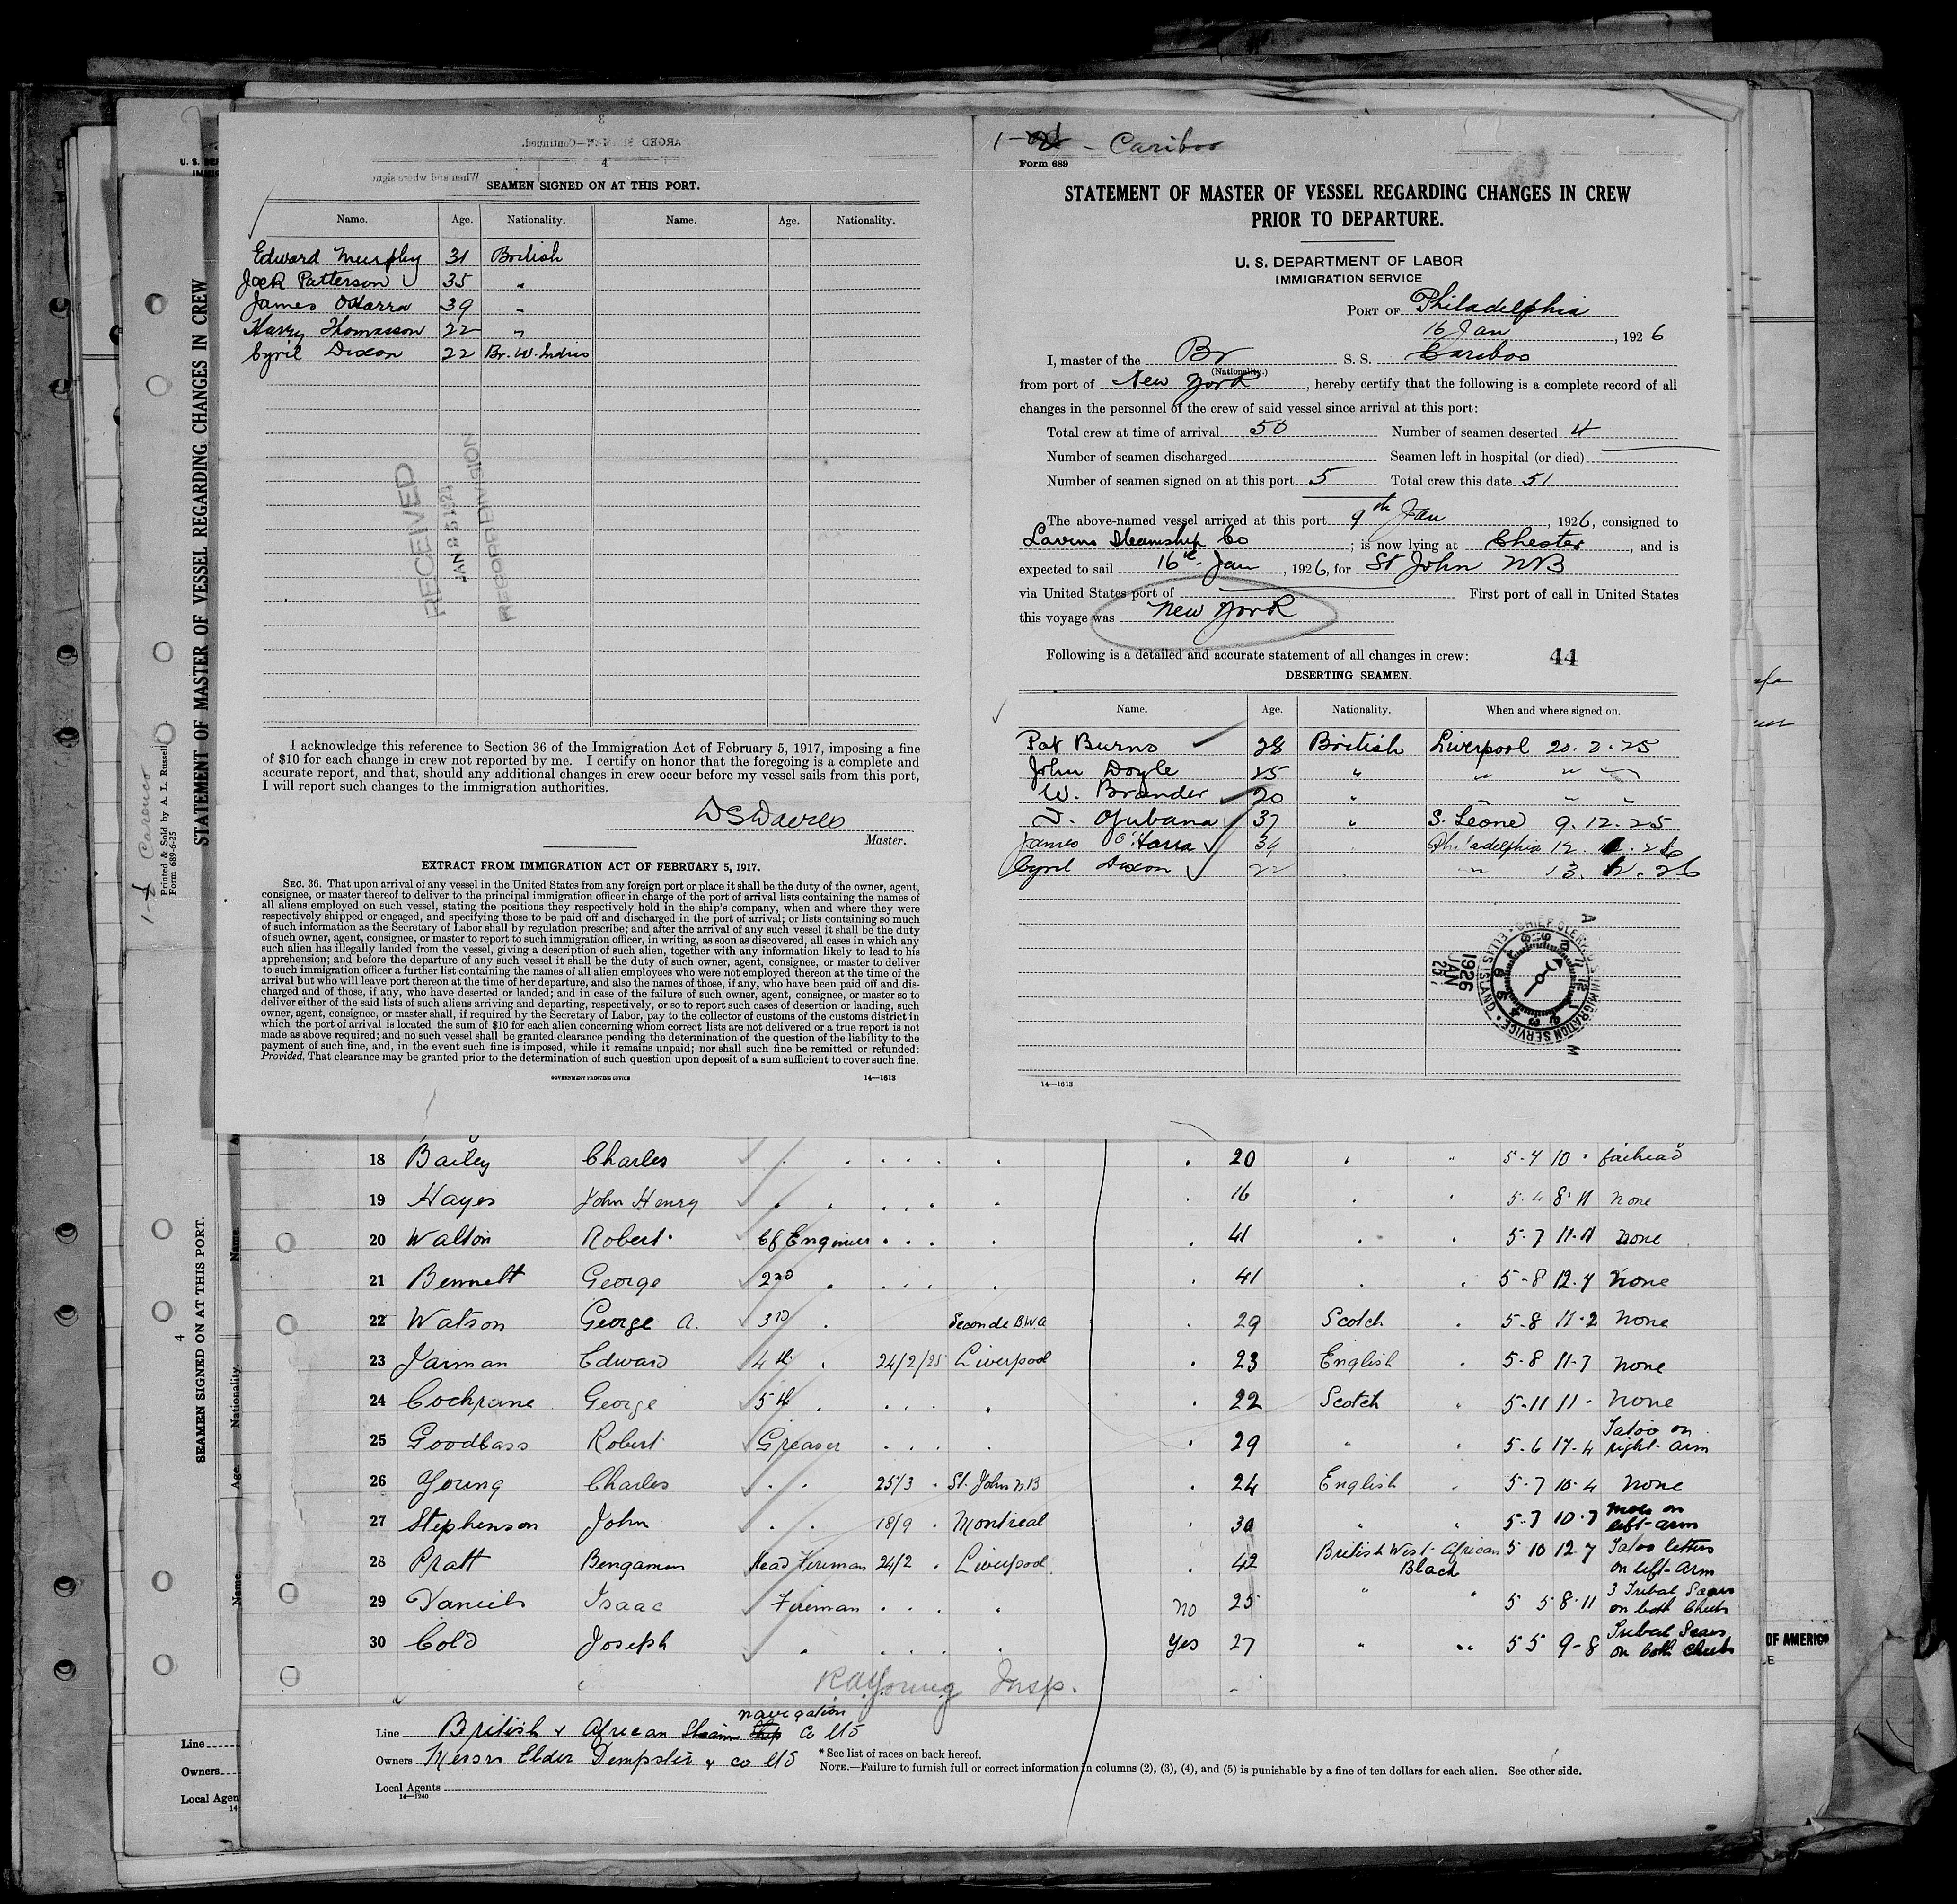 4
SEAMEN SIGNED ON AT THIS PORT.
Name. Age. Nationality. Name. Age. Nationality.
Edward Murphy 31 British
Jack Patterson 35 "
James OHarra 39 "
Harry Thomasson 22 "
Cyril Dixon 22 Br. W. Indies
RECEIVED
RECORD DIVISION
I acknowledge this reference to Section 36 of the Immigration Act of February 5, 1917, imposing a fine
of $10 for each change in crew not reported by me. I certify on honor that the foregoing is a complete and
accurate report, and that, should any additional changes in crew occur before my vessel sails from this port,
I will report such changes to the immigration authorities.
Master.
EXTRACT FROM IMMIGRATION ACT OF FEBRUARY 5, 1917.
SEC. 36. That upon arrival of any vessel in the United States from any foreign port or place it shall be the duty of the owner, agent,
consignee, or master thereof to deliver to the principal immigration officer in charge of the port of arrival lists containing the names of
all aliens employed on such vessel, stating the positions they respectively hold in the ship's company, when and where they were
respectively shipped or engaged, and specifying those to be paid off and discharged in the port of arrival; or lists containing so much
of such information as the Secretary of Labor shall by regulation prescribe; and after the arrival of any such vessel it shall be the duty
of such owner, agent, consignee, or master to report to such immigration officer, in writing, as soon as discovered, all cases in which any
such alien has illegally landed from the vessel, giving a description of such alien, together with any information likely to lead to his
apprehension; and before the departure of any such vessel it shall be the duty of such owner, agent, consignee, or master to deliver
to such immigration officer a further list containing the names of all alien employees who were not employed thereon at the time of the
arrival but who will leave port thereon at the time of her departure, and also the names of those, if any, who have been paid off and dis-
charged and of those, if any, who have deserted or landed; and in case of the failure of such owner, agent, consignee, or master so to
deliver either of the said lists of such aliens arriving and departing, respectively, or so to report such cases of desertion or landing, such
owner, agent, consignee, or master shall, if required by the Secretary of Labor, pay to the collector of customs of the customs district in
which the port of arrival is located the sum of $10 for each alien concerning whom correct lists are not delivered or a true report is not
made as above required; and no such vessel shall be granted clearance pending the determination of the question of the liability to the
payment of such fine, and, in the event such fine is imposed, while it remains unpaid; nor shall such fine be remitted or refunded:
Provided, That clearance may be granted prior to the determination of such question upon deposit of a sum sufficient to cover such fine.
GOVERNMENT PRINTING OFFICE 14—1613
Cariboo
Form 689
STATEMENT OF MASTER OF VESSEL REGARDING CHANGES IN CREW
PRIOR TO DEPARTURE.
U. S. DEPARTMENT OF LABOR
IMMIGRATION SERVICE
PORT OF Philadelphia
16 Jan , 1926
I, master of the Br S. S. Cariboo
(Nationality.)
from port of New York , hereby certify that the following is a complete record of all
changes in the personnel of the crew of said vessel since arrival at this port:
Total crew at time of arrival 50 Number of seamen deserted 4
Number of seamen discharged Seamen left in hospital (or died)
Number of seamen signed on at this port 5 Total crew this date 51
The above-named vessel arrived at this port 9th Jan , 1926, consigned to
Lavino Steamship Co ; is now lying at Chester , and is
expected to sail 16th Jan , 1926, for St John NB
via United States port of First port of call in United States
this voyage was New York
Following is a detailed and accurate statement of all changes in crew: 44
DESERTING SEAMEN.
Name. Age. Nationality. When and where signed on.
Pat Burns 28 British Liverpool
John Doyle 25 " " " "
W. Brander 20 " " " "
37 " S. Leone 9.12.25
James O'Harra Philadelphia
Cyril Dixon 22
1926
JAN
25
CHIEF CLERK • IMMIGRATION SERVICE • ELLIS ISLAND
14—1613
18 Bailey Charles 20 5-4 10 forehead
19 Hayes John Henry 16 5-4 8-11 none
20 Walton Robert Cf Engineer 41 5-7 11-11 none
21 Bennett George 2nd 41 5-8 12.4 none
22 Watson George A. 3rd Seconde B.W.A 29 Scotch 5-8 11-2 none
23 Jarman Edward 4th 24/2/25 Liverpool 23 English 5-8 11-7 none
24 Cochrane George 5th 22 Scotch 5-11 11- none
25 Goodbass Robert Greaser 29 5-6 Tatoo on right arm
26 Young Charles 25/3 St. John N.B 24 English 5-7 10-4 none
27 Stephenson John 18/9 Montreal 30 5-7 10-7 left-arm
28 Pratt Bengamen Head Fireman 24/2 Liverpool 42 British West African Black 5 10 12 7 Tatoo letters on left arm
29 Daniels Isaac Fireman no 25 5 5 8-11 3 Tribal Scars on both Cheeks
30 Cold Joseph Yes 27 5 5 9-8 Tribal Scars on both cheeks
RAYoung Insp.
navigation
Line British & African Steam Ship Co Ltd
Owners Messrs Elder Dempster & Co Ltd
Local Agents
14—1240
* See list of races on back hereof.
NOTE.—Failure to furnish full or correct information in columns (2), (3), (4), and (5) is punishable by a fine of ten dollars for each alien. See other side.
STATEMENT OF MASTER OF VESSEL REGARDING CHANGES IN CREW
Printed & Sold by A. L. Russell
Form 689-6-25
4
SEAMEN SIGNED ON AT THIS PORT.
Name. Age. Nationality. Name.
Line
Owners
Local Agen
14
OF AMERICA